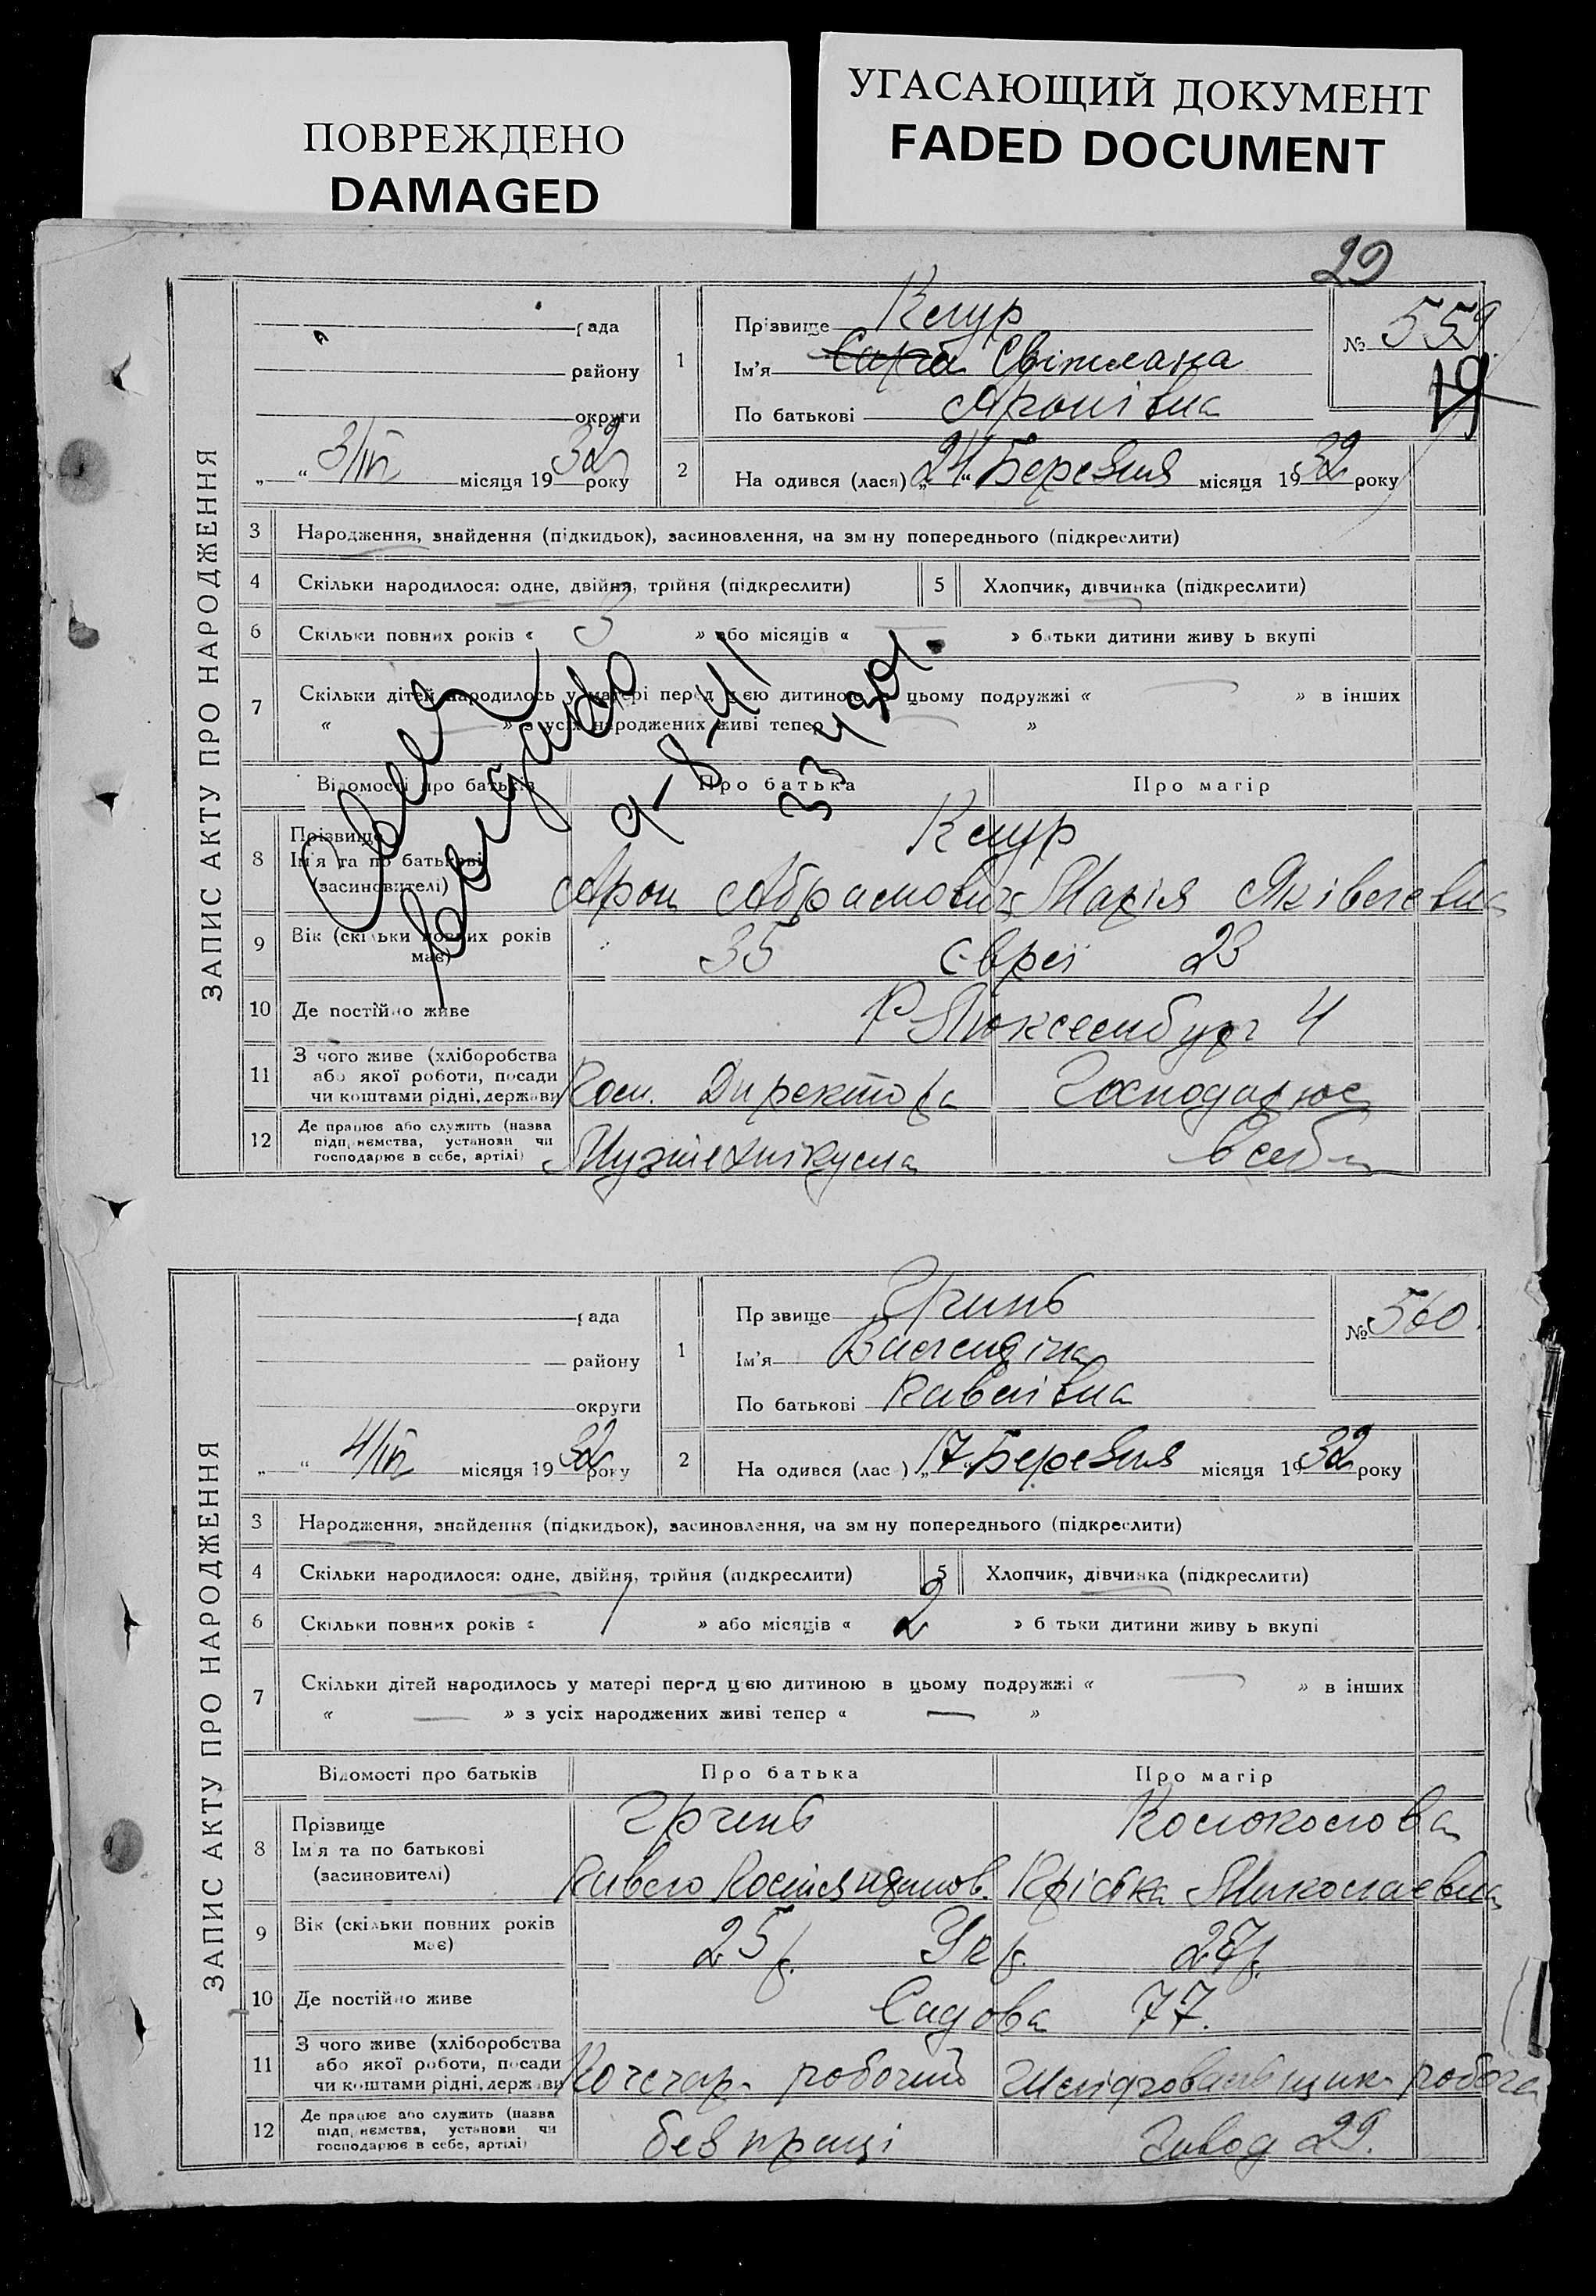 ПОВРЕЖДЕНО
DAMAGED
УГАСАЮЩИЙ ДОКУМЕНТ
FADED DOCUMENT
29
ЗАПИС АКТУ ПРО НАРОДЖЕННЯ
рада
району
округи
„ “ 3/IV місяця 1932 року
1
Прізвище Клур
Ім'я Сарра Світлана
По батькові Аронівна
№ 559
19
2 На одився (лася) „24“ Березня місяця 1932 року
3 Народження, знайдення (підкидьок), засиновлення, на зм ну попереднього (підкреслити)
4 Скільки народилося: одне, двійня, трійня (підкреслити) 5 Хлопчик, дівчинка (підкреслити)
6 Скільки повних років « 3 » або місяців « — » батьки дитини живу ь вкупі
7 Скільки дітей народилось у матері перед цією дитиною в цьому подружжі « — » в інших
« — » з усіх народжених живі тепер « — »
9-8-41
Відомості про батьків Про батька Про матір
8 Прізвище
Ім'я та по батькові
(засиновителі)
Клур
Арон Абрамович Марія Яківлевна
9 Вік (скільки повних років має) 35 Євреї 23
10 Де постійно живе Р Люксембург 4
11 З чого живе (хліборобства
або якої роботи, посади
чи коштами рідні, держави
Пом. Директора Господарює
12 Де працює або служить (назва
підп, иємства, установи чи
господарює в себе, артілі)
Музтехнікума в себе
ЗАПИС АКТУ ПРО НАРОДЖЕННЯ
рада
району
округи
„ “ 4/IV місяця 1932 року
1
Пр звище Гринь
Ім'я
По батькові Павлівна
№ 560
2 На одився (лас ) „17“ Березня місяця 1932 року
3 Народження, знайдення (підкидьок), засиновлення, на зм ну попереднього (підкреслити)
4 Скільки народилося: одне, двійня, трійня (підкреслити) 5 Хлопчик, дівчинка (підкреслити)
6 Скільки повних років « 1 » або місяців « 2 » б тьки дитини живу ь вкупі
7 Скільки дітей народилось у матері перед цією дитиною в цьому подружжі « — » в інших
« — » з усіх народжених живі тепер « — »
Відомості про батьків Про батька Про матір
8 Прізвище
Ім'я та по батькові
(засиновителі)
Гринь Колоколова
Павло Костянтинов. Микола​євна
9 Вік (скільки повних років має) 25 р. Укр. 27 р.
10 Де постійно живе Садова 77.
11 З чого живе (хліборобства
або якої роботи, посади
чи коштами рідні, держави
Кочегар робочий робоча
12 Де працює або служить (назва
підп, иємства, установи чи
господарює в себе, артілі)
без праці Завод 29.